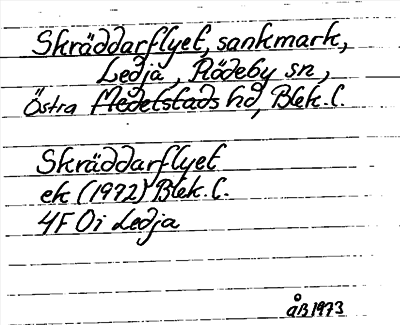 Skräddarflyet, sankmark,
Ledja, Rödeby sn,
Östra Medelstads hd, Blek. l.
Skräddarflyet
ek (1972) Blek. l.
4F 0i Ledja
ÅB 1973